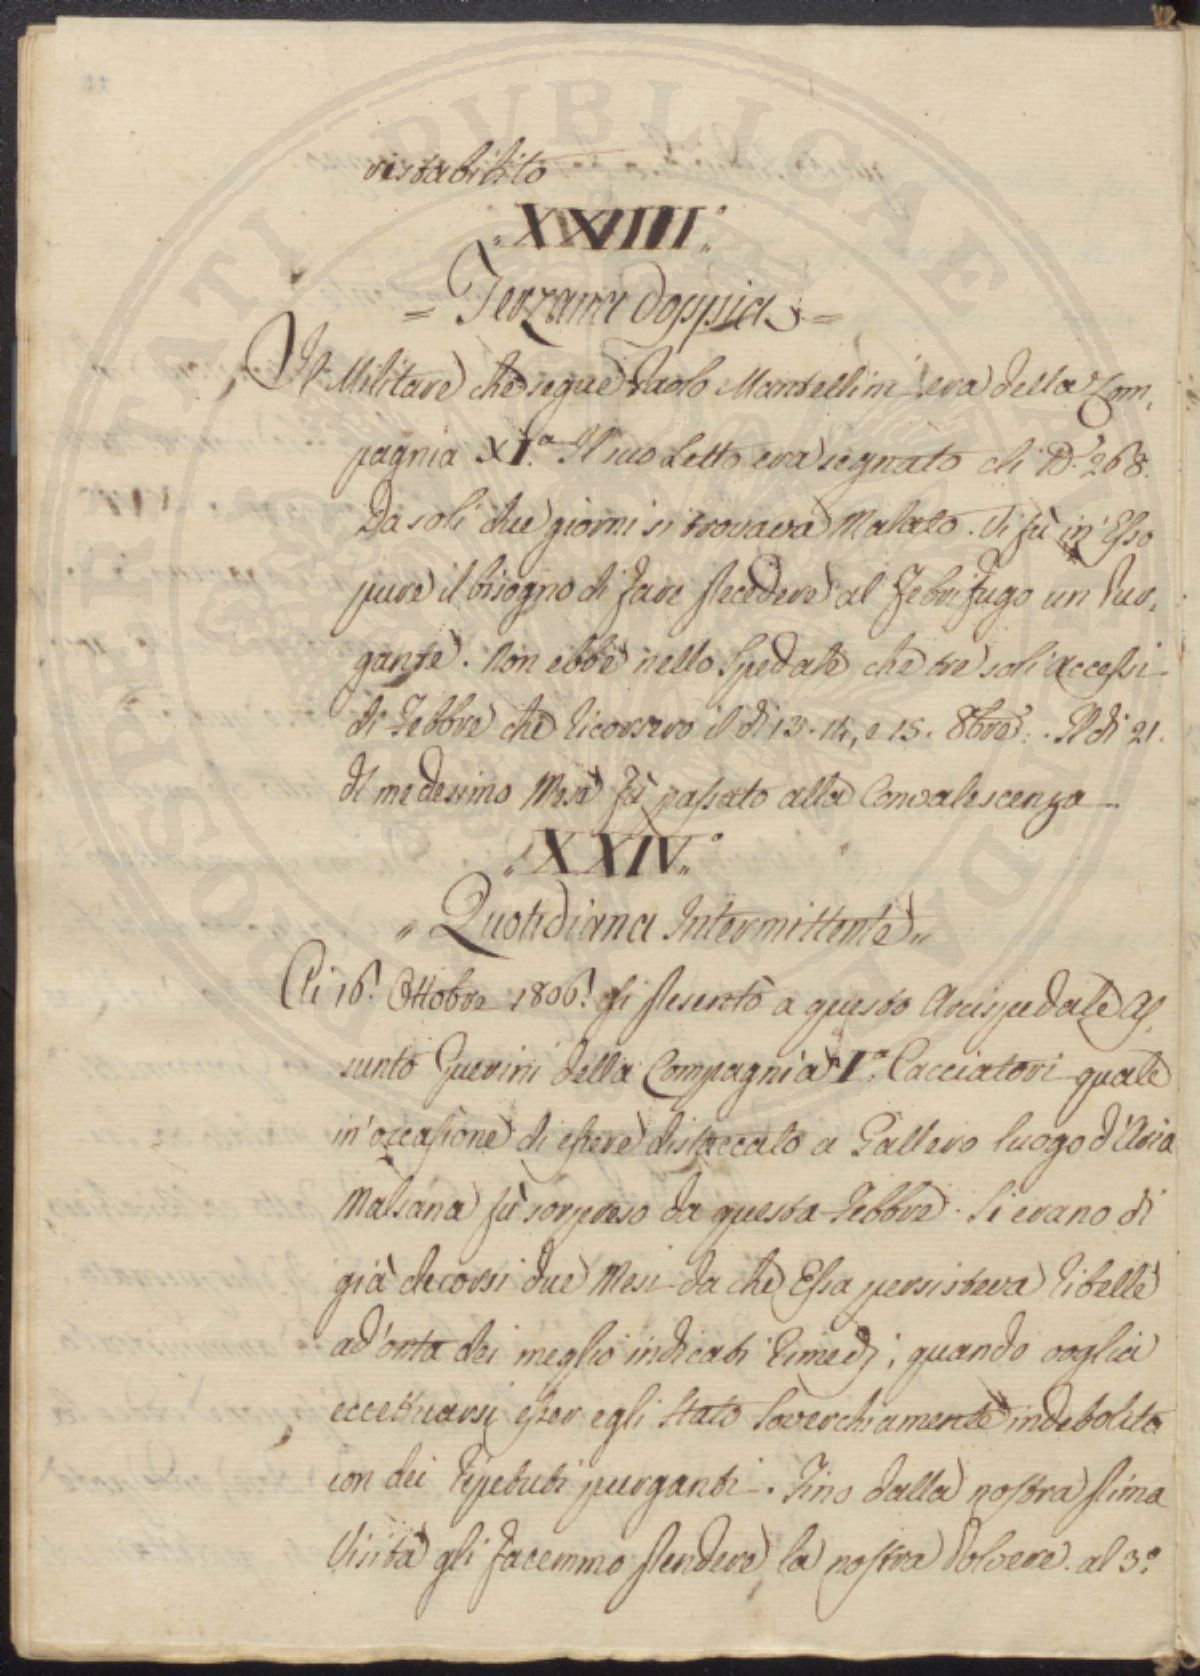 ristabilito
„XXIIII.°„
= Terzana doppia =
Il Militare che segue Paolo Mantellini era della Com,
pagnia XI.a Il suo Letto era segnato di N.° 268.
Da soli due giorni si trovava Malato. Vi fù in' Esso
pure il bisogno di fare precedere al Febrifugo un Pur,
gante. Non ebbe nello Spedale che tre soli accessi
di Febbre che ricorsero il dì 13. 14, e 15. 8bre. Il dì 21.
del medesimo Mese fù passato alla Convalescenza.
„XXIV.°„
„ Quotidiana Intermittente „
Ai 16. Ottobre 1806. si presentò a questo Arcispedale As,
sunto Guerini della Compagnia I.a Cacciatori quale
in' occasione di essere distaccato a Gallero luogo d'Aria
Malsana fù sorpreso da questa Febbre. Si erano di
già decorsi due Mesi da che Essa persisteva ribelle
ad' onta dei meglio indicati rimedj; quando voglia
eccettuarsi esser egli stato soverchiamente indebolito
con dei repetuti purganti. Fino dalla nostra prima
Visita gli facemmo prendere la nostra Polvere. al 3.°
POSTERITATI PUBLICAE AD VIDENDAM